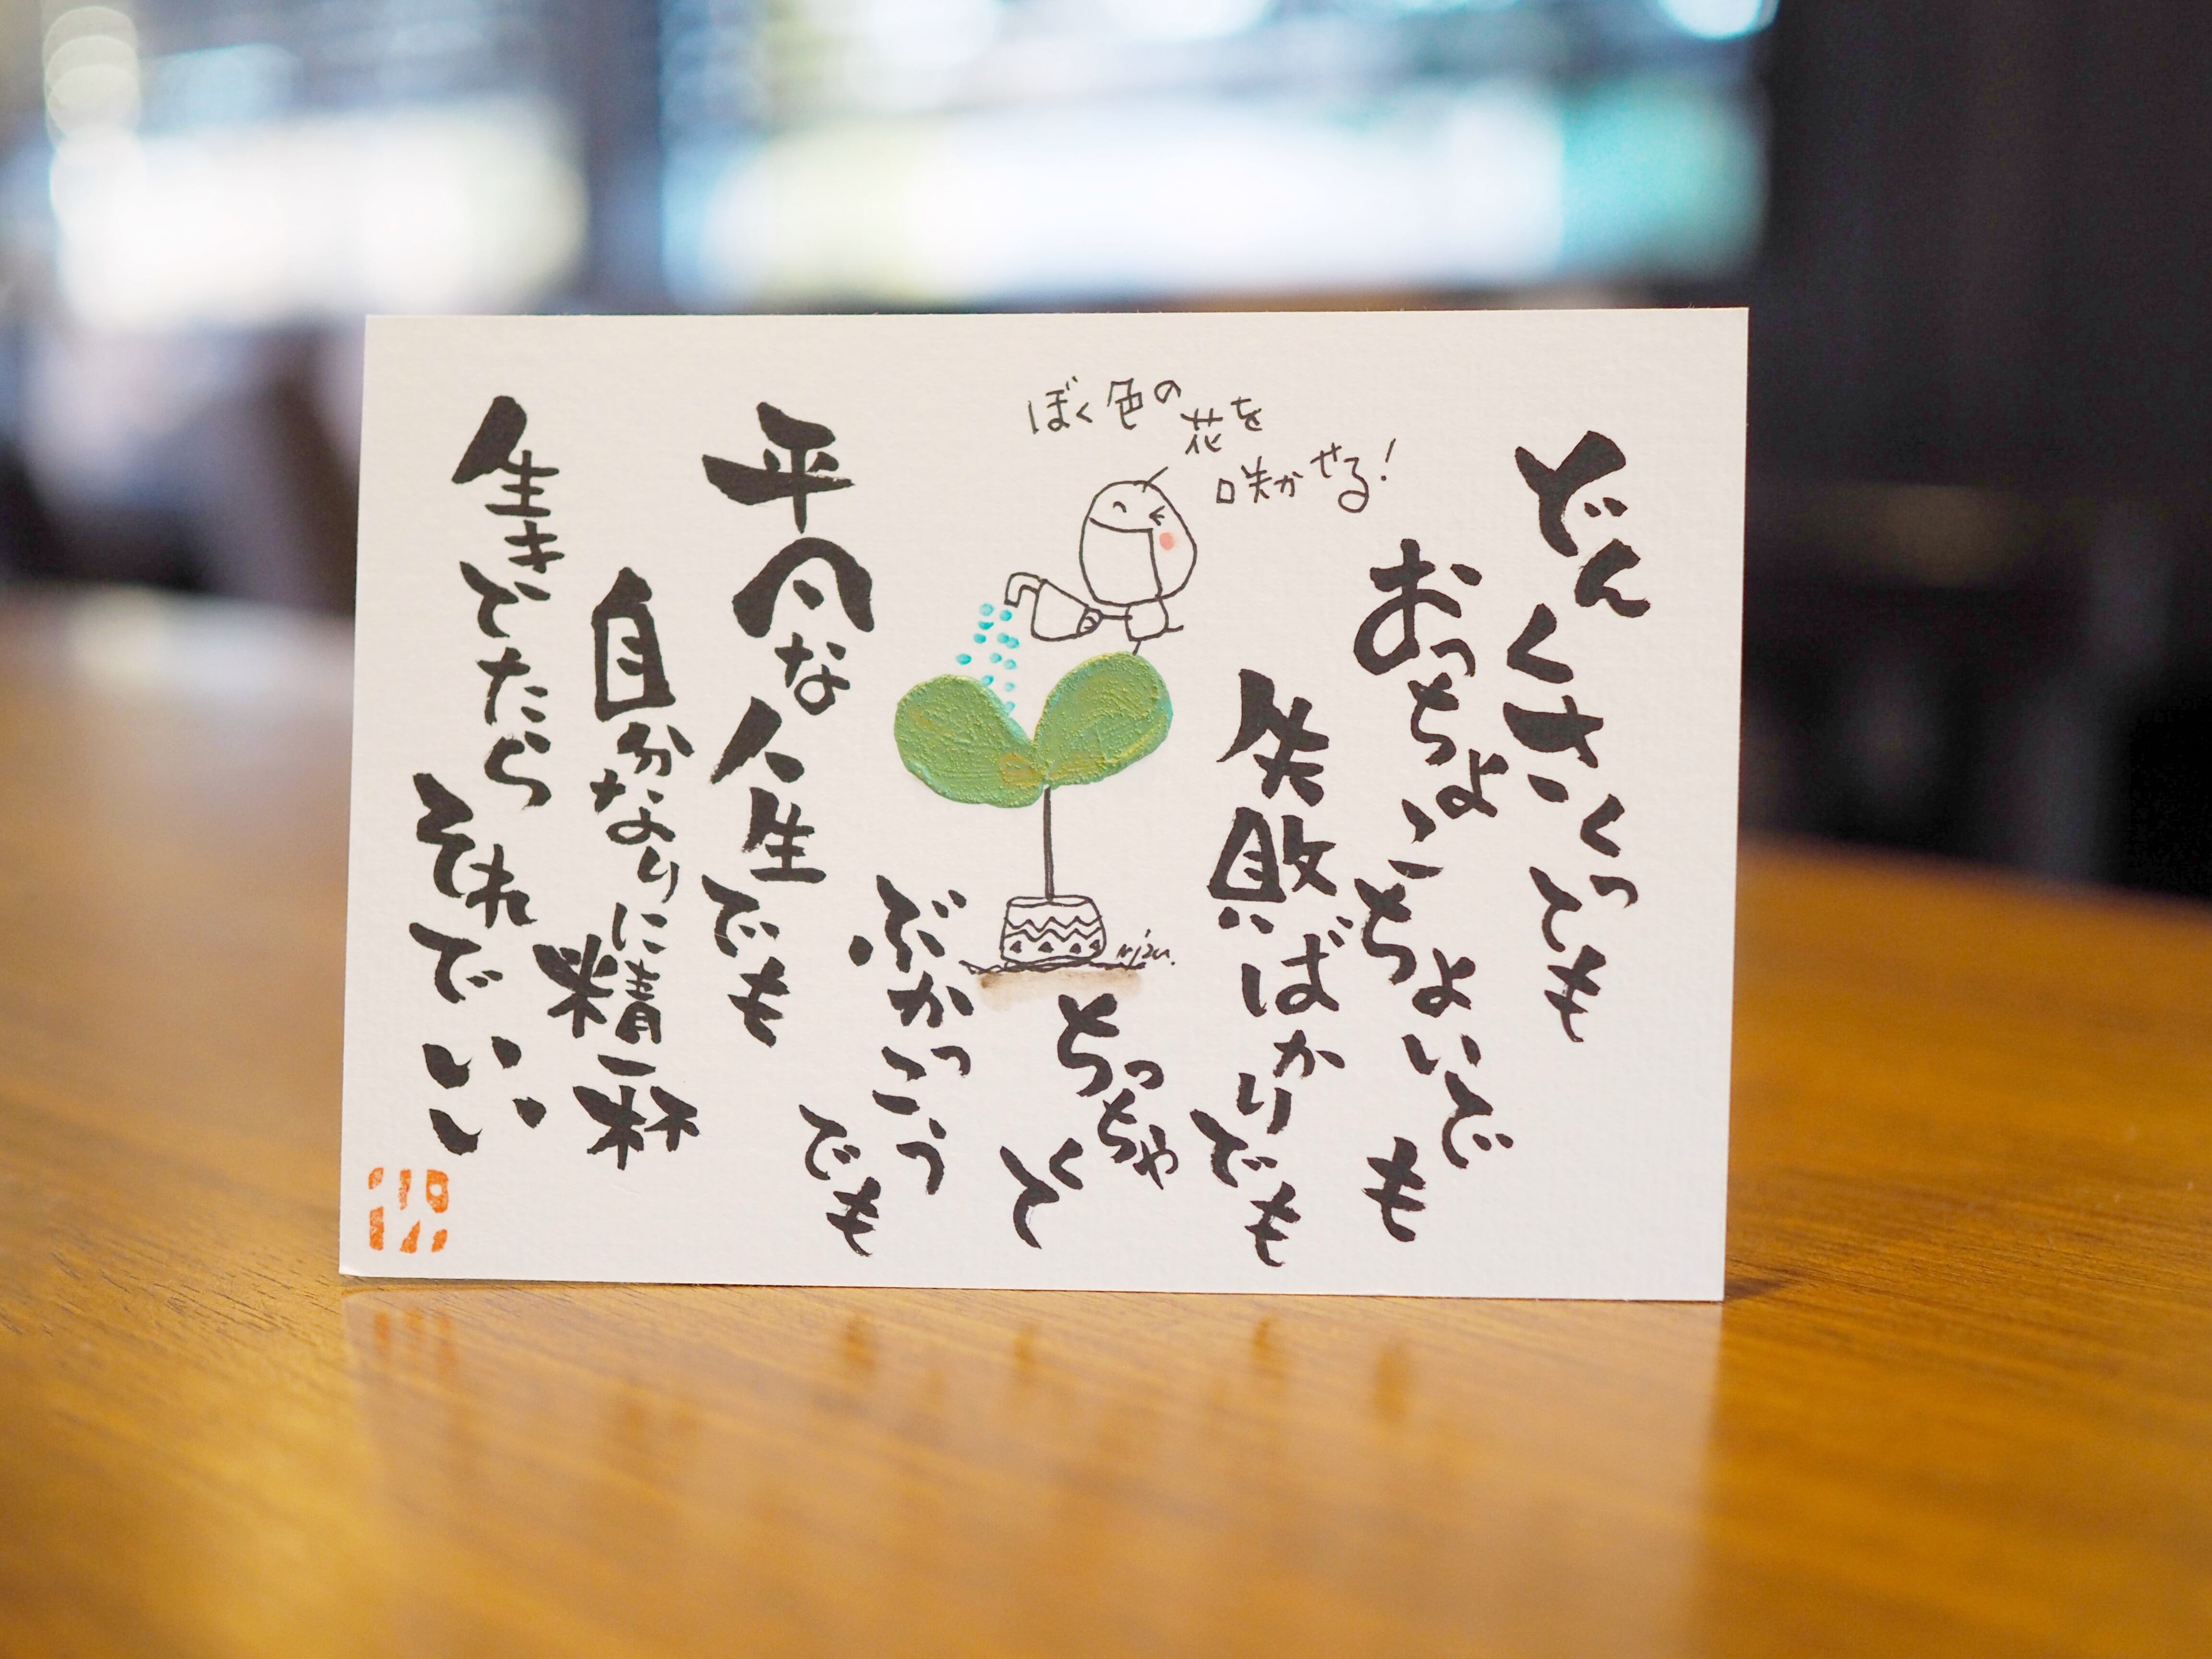 どんくさくっても
おっちょこちょいでも
失敗ばかりでも
ぼく色の
花を
咲かせる!
ちっちゃくて
ぶかっこうでも
平凡な人生でも
自分なりに精一杯
生きてたらそれでいい